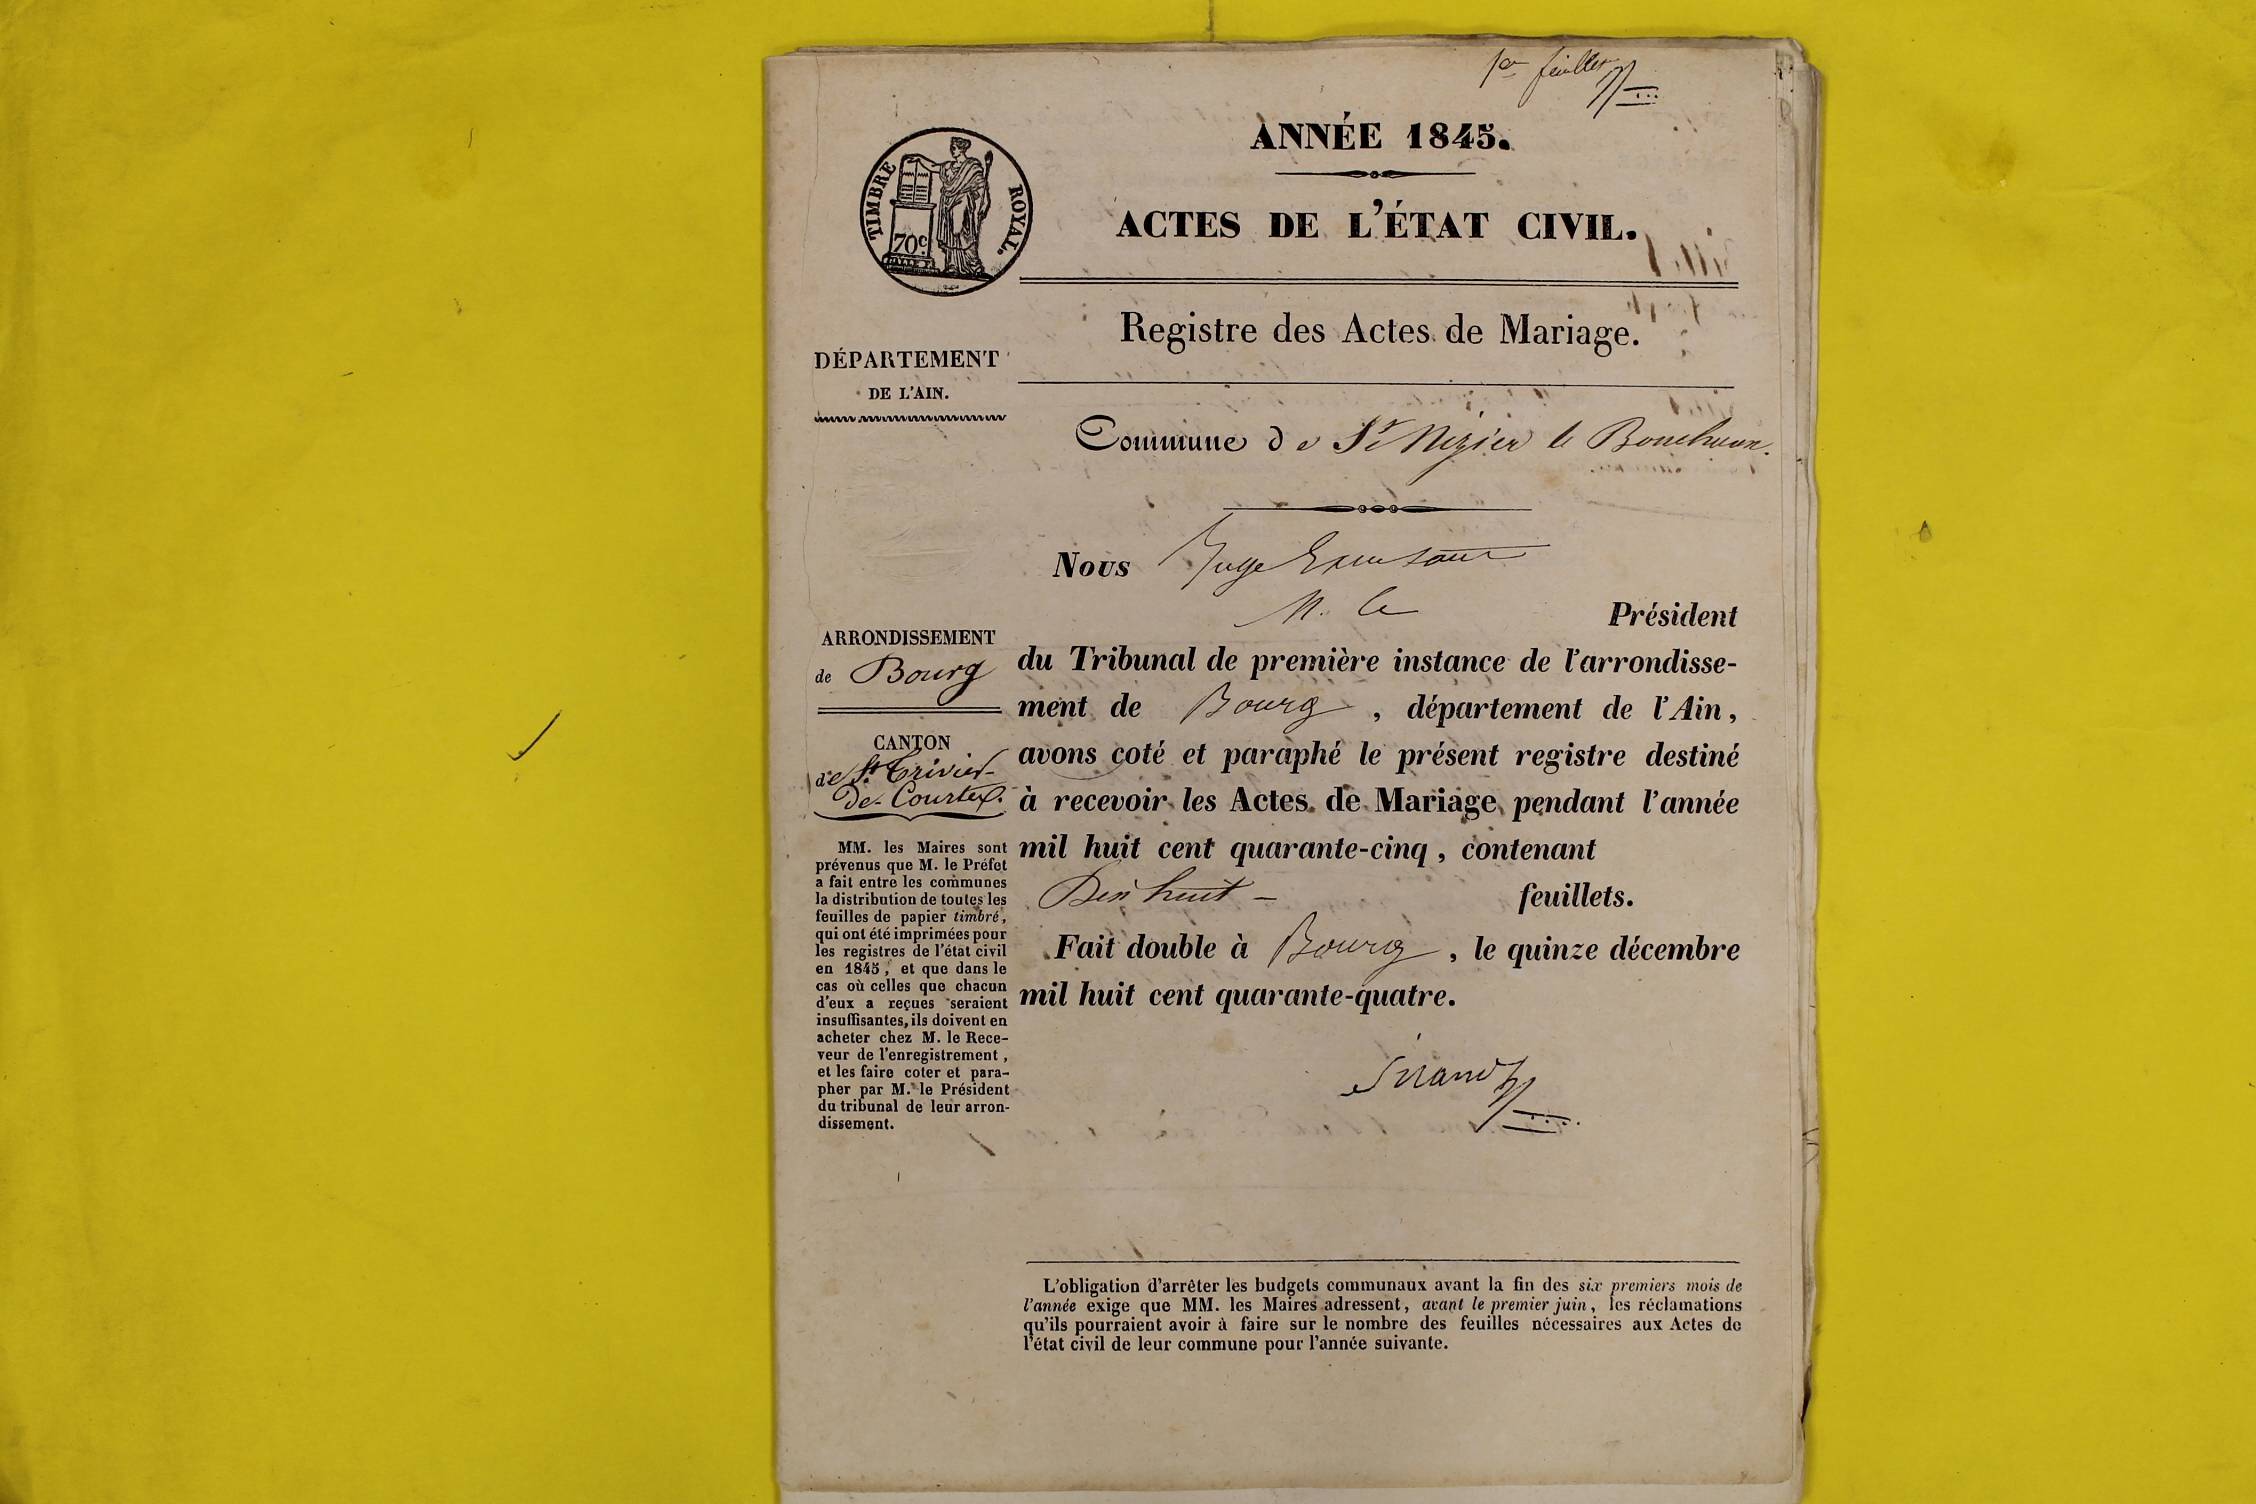 1er feuillet
ANNÉE 1845.
TIMBRE ROYAL.
70c
ACTES DE L'ÉTAT CIVIL.
Registre des Actes de Mariage.
DÉPARTEMENT
DE L'AIN.
Commune de St Nizier le Bouchoux.
Nous Juge
M. le Président
ARRONDISSEMENT
de Bourg
du Tribunal de première instance de l'arrondisse-
ment de Bourg, département de l'Ain,
CANTON
de St. Trivier
De Courtes.
avons coté et paraphé le présent registre destiné
à recevoir les Actes de Mariage pendant l'année
mil huit cent quarante-cinq, contenant
Dix huit - feuillets.
Fait double à Bourg, le quinze décembre
mil huit cent quarante-quatre.
MM. les Maires sont
prévenus que M. le Préfet
a fait entre les communes
la distribution de toutes les
feuilles de papier timbré,
qui ont été imprimées pour
les registres de l'état civil
en 1845, et que dans le
cas où celles que chacun
d'eux a reçues seraient
insuffisantes, ils doivent en
acheter chez M. le Rece-
veur de l'enregistrement,
et les faire coter et para-
pher par M. le Président
du tribunal de leur arron-
dissement.
L'obligation d'arrêter les budgets communaux avant la fin des six premiers mois de
l'année exige que MM. les Maires adressent, avant le premier juin, les réclamations
qu'ils pourraient avoir à faire sur le nombre des feuilles nécessaires aux Actes de
l'état civil de leur commune pour l'année suivante.